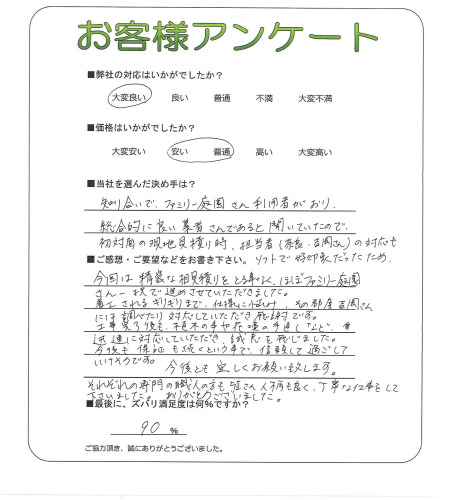 お客様アンケート
■弊社の対応はいかがでしたか？
大変良い 良い 普通 不満 大変不満
■価格はいかがでしたか？
大変安い 安い 普通 高い 大変高い
■当社を選んだ決め手は？
知り合いで、ファミリー庭園さん利用者がおり、
総合的に良い業者さんであると聞いていたので。
初対面の現地見積り時、担当者(奈良・吉岡さん)の対応も
■ご感想・ご要望などをお書き下さい。 ソフトで好印象だったため。
今回は相見積りをとる事なく、ほぼファミリー庭園
さん一択で進めさせていただきました。
着工されるギリギリまで、仕様に悩み、その都度吉岡さん
には調べたり対応していただき感謝です。
工事完了後も、植木の手直しなど、
迅速に対応していただき、誠意を感じました。
今後も保証も続くという事で、信頼して過ごして
いけそうです。 今後とも宜しくお願い致します。
それぞれの専門の職人の方も皆さん人柄も良く、丁寧な仕事をして
下さいました。ありがとうございました。
■最後に、ズバリ満足度は何%ですか？
90 %
ご協力頂き、誠にありがとうございました。